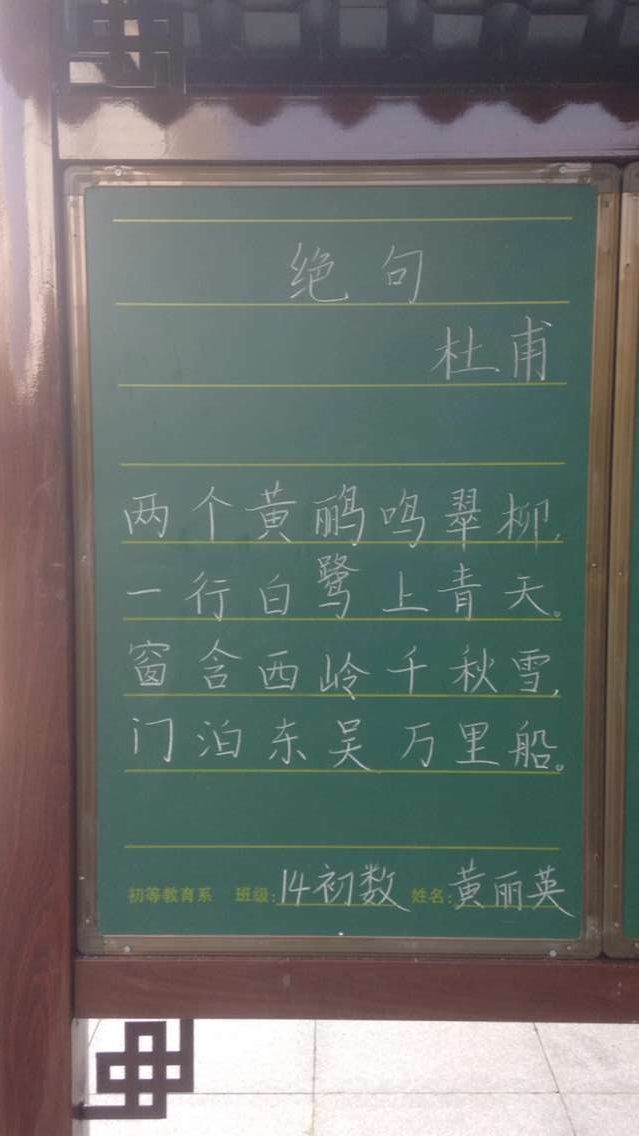 绝句
杜甫
两个黄鹂鸣翠柳,
一行白鹭上青天。
窗含西岭千秋雪,
门泊东吴万里船。
初等教育系 班级:14初数 姓名:黄丽英